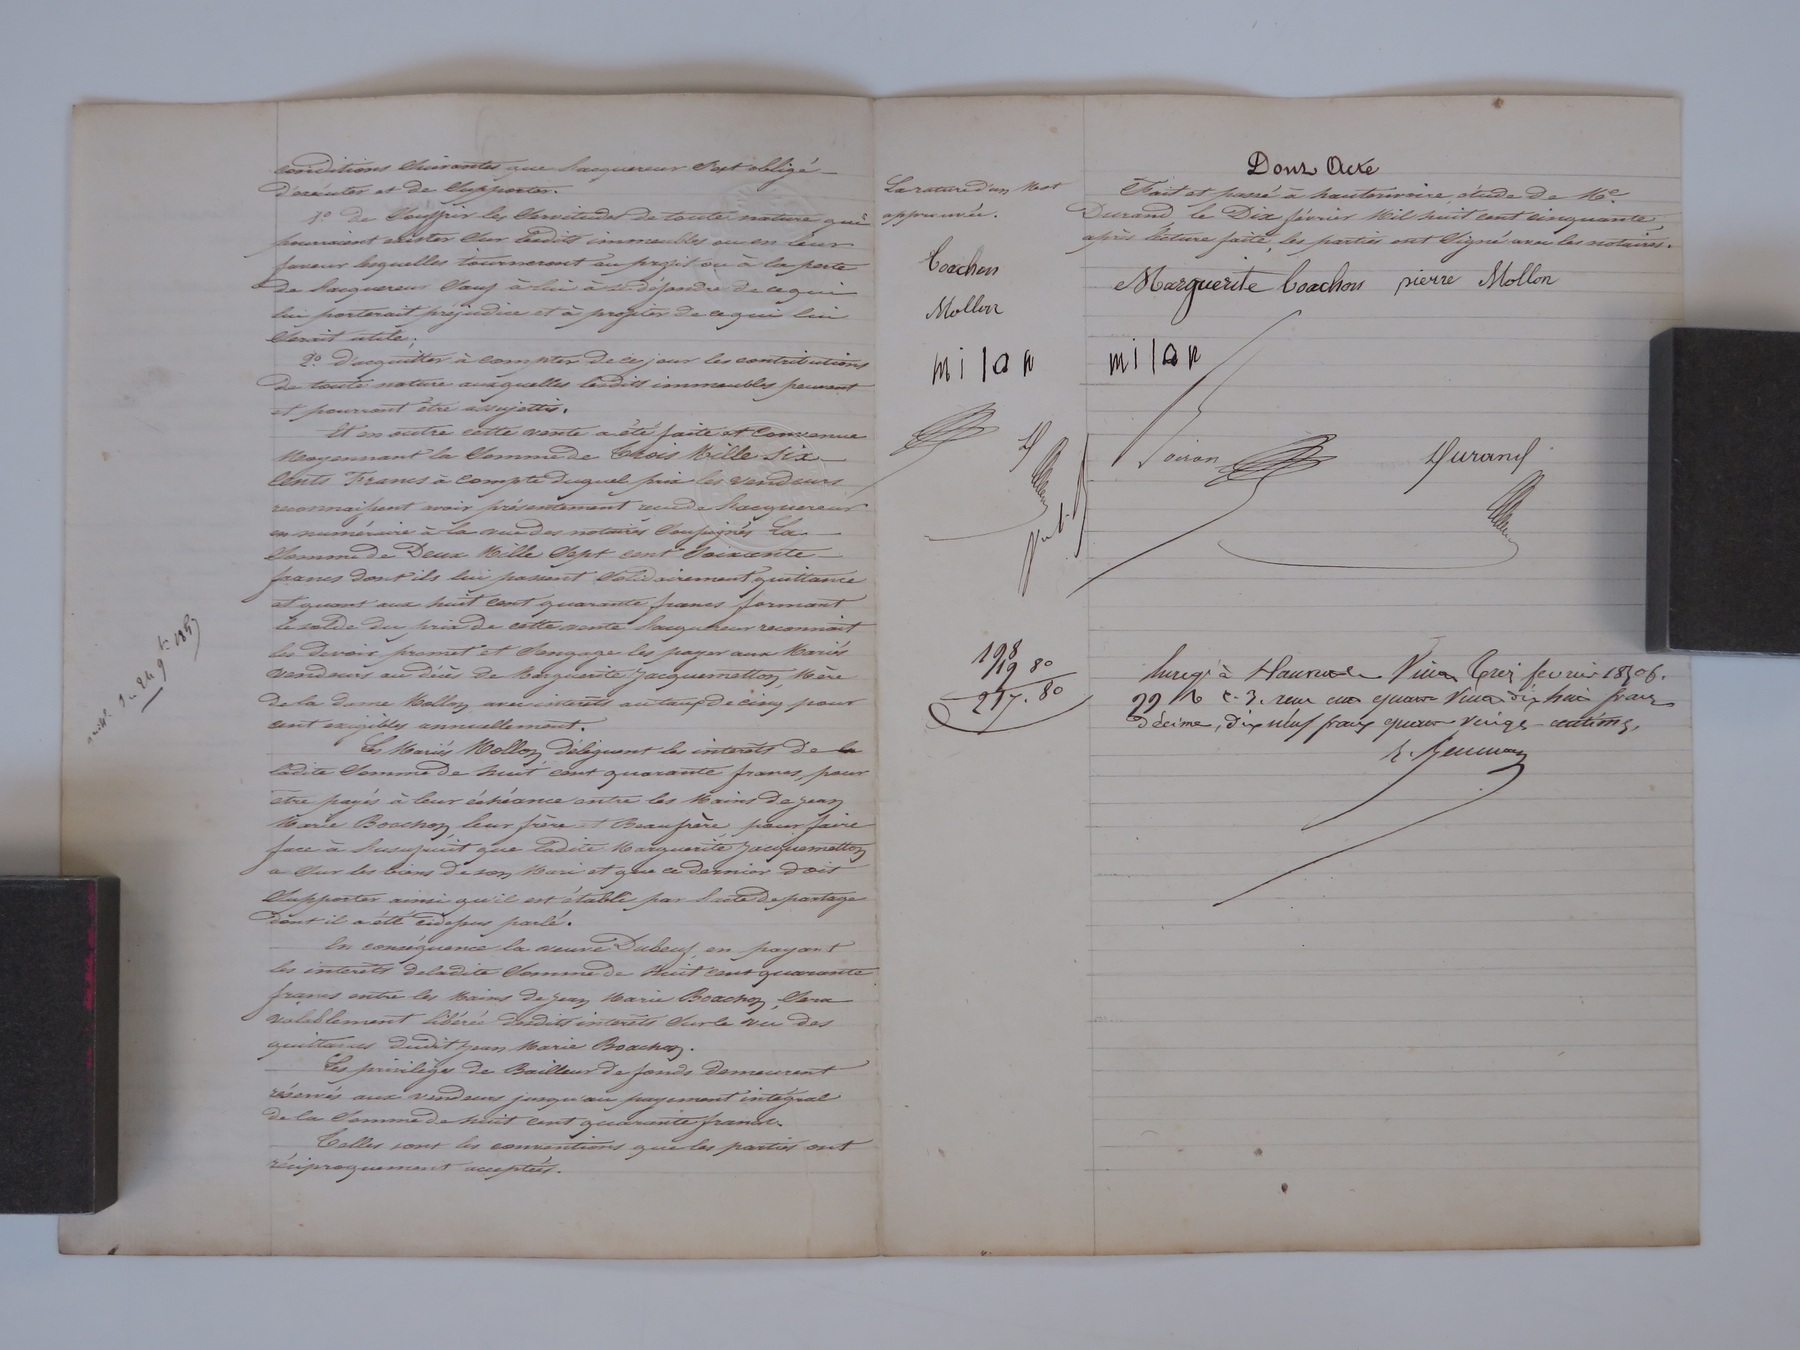 conditions suivantes que l'acquereur s'est obligé
d'exécuter et de supporter.
1º de souffrir les servitudes de toute nature qui
pourraient exister sur lesdits immeubles ou en leur
faveur lesquelles tourneront au profit ou à la perte
de l'acquereur sauf à lui à se défendre de ce qui
lui porterait préjudice et à profiter de ce qui lui
serait utile;
2º d'acquitter à compter de ce jour les contributions
de toute nature auxquelles lesdits immeubles peuvent
et pourront être assujettis.
Et en outre cette vente a été faite et convenue
moyennant la somme de Trois Mille Six
Cents Francs à compte duquel prix les vendeurs
reconnaissent avoir présentement reçu de l'acquereur
en numéraire à la vue des notaires soussignés la
somme de Deux Mille Sept cent Soixante
francs dont ils lui passent solidairement quittance
et quant aux huit cent quarante francs formant
le solde du prix de cette vente l'acquereur reconnait
les devoir promet et s'engage les payer aux Mariés
vendeurs au décès de Marguerite Jacquemetton, Mère
de la dame Mollon avec interêts au taux de cinq pour
cent exigibles annuellement.
Les Mariés Mollon délèguent les interêts de la
ladite somme de huit cent quarante francs, pour
être payés à leur échéance entre les mains de Jean
Marie Boachon leur frère et Beaufrère pour faire
face à l'usufruit que ladite Marguerite Jacquemetton
a sur les biens de son Mari et que ce dernier doit
supporter ainsi qu'il est établi par l'acte de partage
dont il a été cidessus parlé.
En conséquence la veuve Dubeuf, en payant
les interêts deladite somme de huit cent quarante
francs entre les Mains de Jean Marie Boachon sera
valablement libérée desdits interêts sur le vu des
quittances dudit Jean Marie Boachon.
Les privilèges de Bailleur de fonds demeurent
réservés aux vendeurs jusqu'au payement intégral
de la somme de huit cent quarante francs.
Telles sont les conventions que les parties ont
réciproquement acceptées.
La rature d'un Mot
approuvée.
Boachon
Mollon
milan
198
19 80
217. 80
Dont Acte
Fait et passé à hauterivoire, étude de Me
Durand, le Dix février Mil huit cent cinquante
après lecture faite, les parties ont signé avec les notaires.
Marguerite Boachon pierre Mollon
milan
Voiron Durand
le Treize fevrier 1850 f.
99 reçu cent quatre Vingt dix huit francs
décime, dix neuf francs quatre vingt centimes